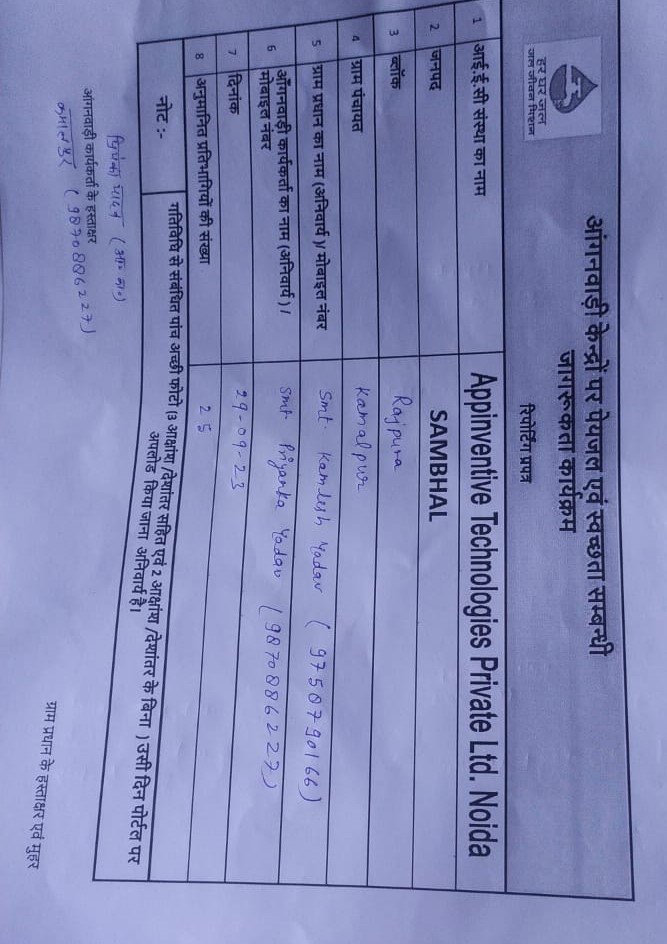 आंगनवाड़ी केन्द्रों पर पेयजल एवं स्वच्छता सम्बन्धी
जागरूकता कार्यक्रम
रिपोर्टिंग प्रपत्र
हर घर जल
जल जीवन मिशन
1 आई.ई.सी संस्था का नाम Appinventive Technologies Private Ltd. Noida
2 जनपद SAMBHAL
3 ब्लॉक Rajpura
4 ग्राम पंचायत Kamalpur
5 ग्राम प्रधान का नाम (अनिवार्य )/ मोबाइल नंबर Smt. Kamlesh Yadav ( 9750790166)
6 आँगनवाड़ी कार्यकर्ता का नाम (अनिवार्य ) /
मोबाइल नंबर Smt Priyanka Yadav (9870886227)
7 दिनांक 29-09-23
8 अनुमानित प्रतिभागियों की संख्या 25
नोट :- गतिविधि से संबंधित पांच अच्छी फोटो (3 आक्षांश /देशांतर सहित एवं 2 आक्षांश /देशांतर के बिना ) उसी दिन पोर्टल पर
अपलोड किया जाना अनिवार्य है।
प्रियंका यादव
आंगनवाड़ी कार्यकर्ता के हस्ताक्षर
कमालपुर (9870886227)
ग्राम प्रधान के हस्ताक्षर एवं मुहर